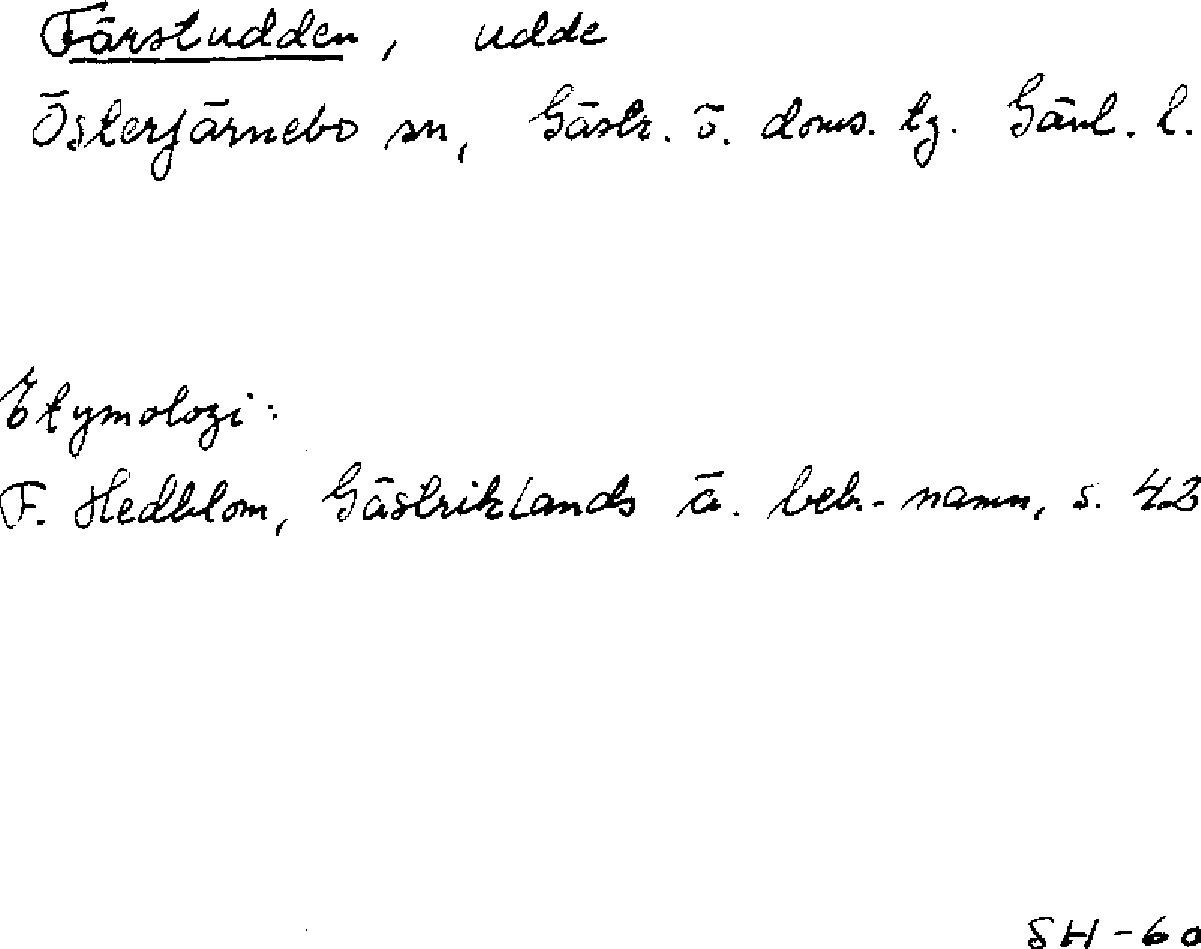 Färstudden, udde
Österfärnebo sn, Gästr. ö. doms. tg. Gävl. l.
Etymologi:
F. Hedblom, Gästriklands ä. beb.-namn, s. 43
SH-60